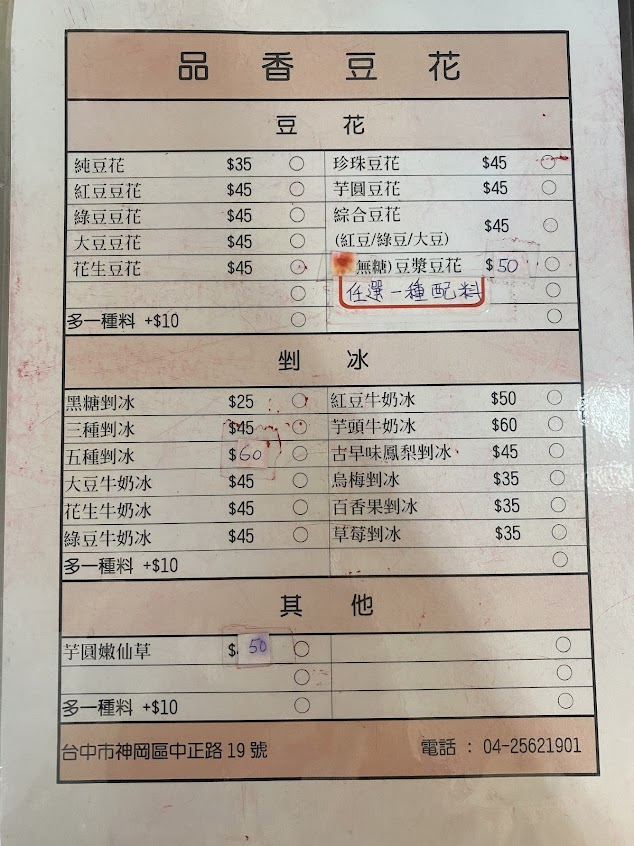 品香豆花
豆花
純豆花 $35 ○ 珍珠豆花 $45 ○
紅豆豆花 $45 ○ 芋圓豆花 $45 ○
綠豆豆花 $45 ○ 綜合豆花
(紅豆/綠豆/大豆) $45 ○
大豆豆花 $45 ○
花生豆花 $45 ○ 無糖)豆漿豆花 $50 ○
○ 任選一種配料 ○
多一種料 +$10 ○ ○
剉冰
黑糖剉冰 $25 ○ 紅豆牛奶冰 $50 ○
三種剉冰 $45 ○ 芋頭牛奶冰 $60 ○
五種剉冰 $60 ○ 古早味鳳梨剉冰 $45 ○
大豆牛奶冰 $45 ○ 烏梅剉冰 $35 ○
花生牛奶冰 $45 ○ 百香果剉冰 $35 ○
綠豆牛奶冰 $45 ○ 草莓剉冰 $35 ○
多一種料 +$10 ○
其他
芋圓嫩仙草 $50 ○ ○
○ ○
多一種料 +$10 ○ ○
台中市神岡區中正路 19 號 電話 : 04-25621901